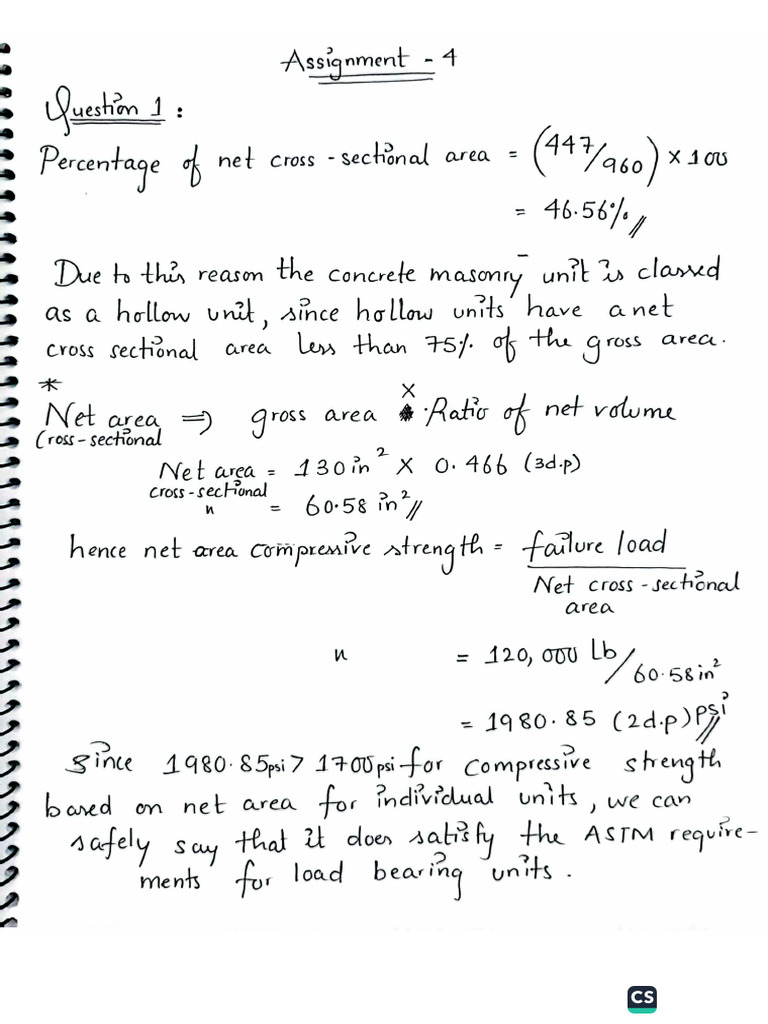 Assignment - 4
Question 1 :
Percentage of net cross-sectional area = (447/960) × 100
= 46.56% //
Due to this reason the concrete masonry unit is classed
as a hollow unit, since hollow units have a net
cross sectional area less than 75% of the gross area.
*
Net area ⇒ gross area × Ratio of net volume
Cross-sectional
Net area = 130 in² × 0.466 (3d.p)
cross-sectional
" = 60.58 in² //
hence net area compressive strength = failure load
Net cross-sectional
area
" = 120,000 Lb/60.58 in²
= 1980.85 (2d.p) psi //
Since 1980.85psi > 1700psi for compressive strength
based on net area for individual units, we can
safely say that it does satisfy the ASTM require-
ments for load bearing units.
CS